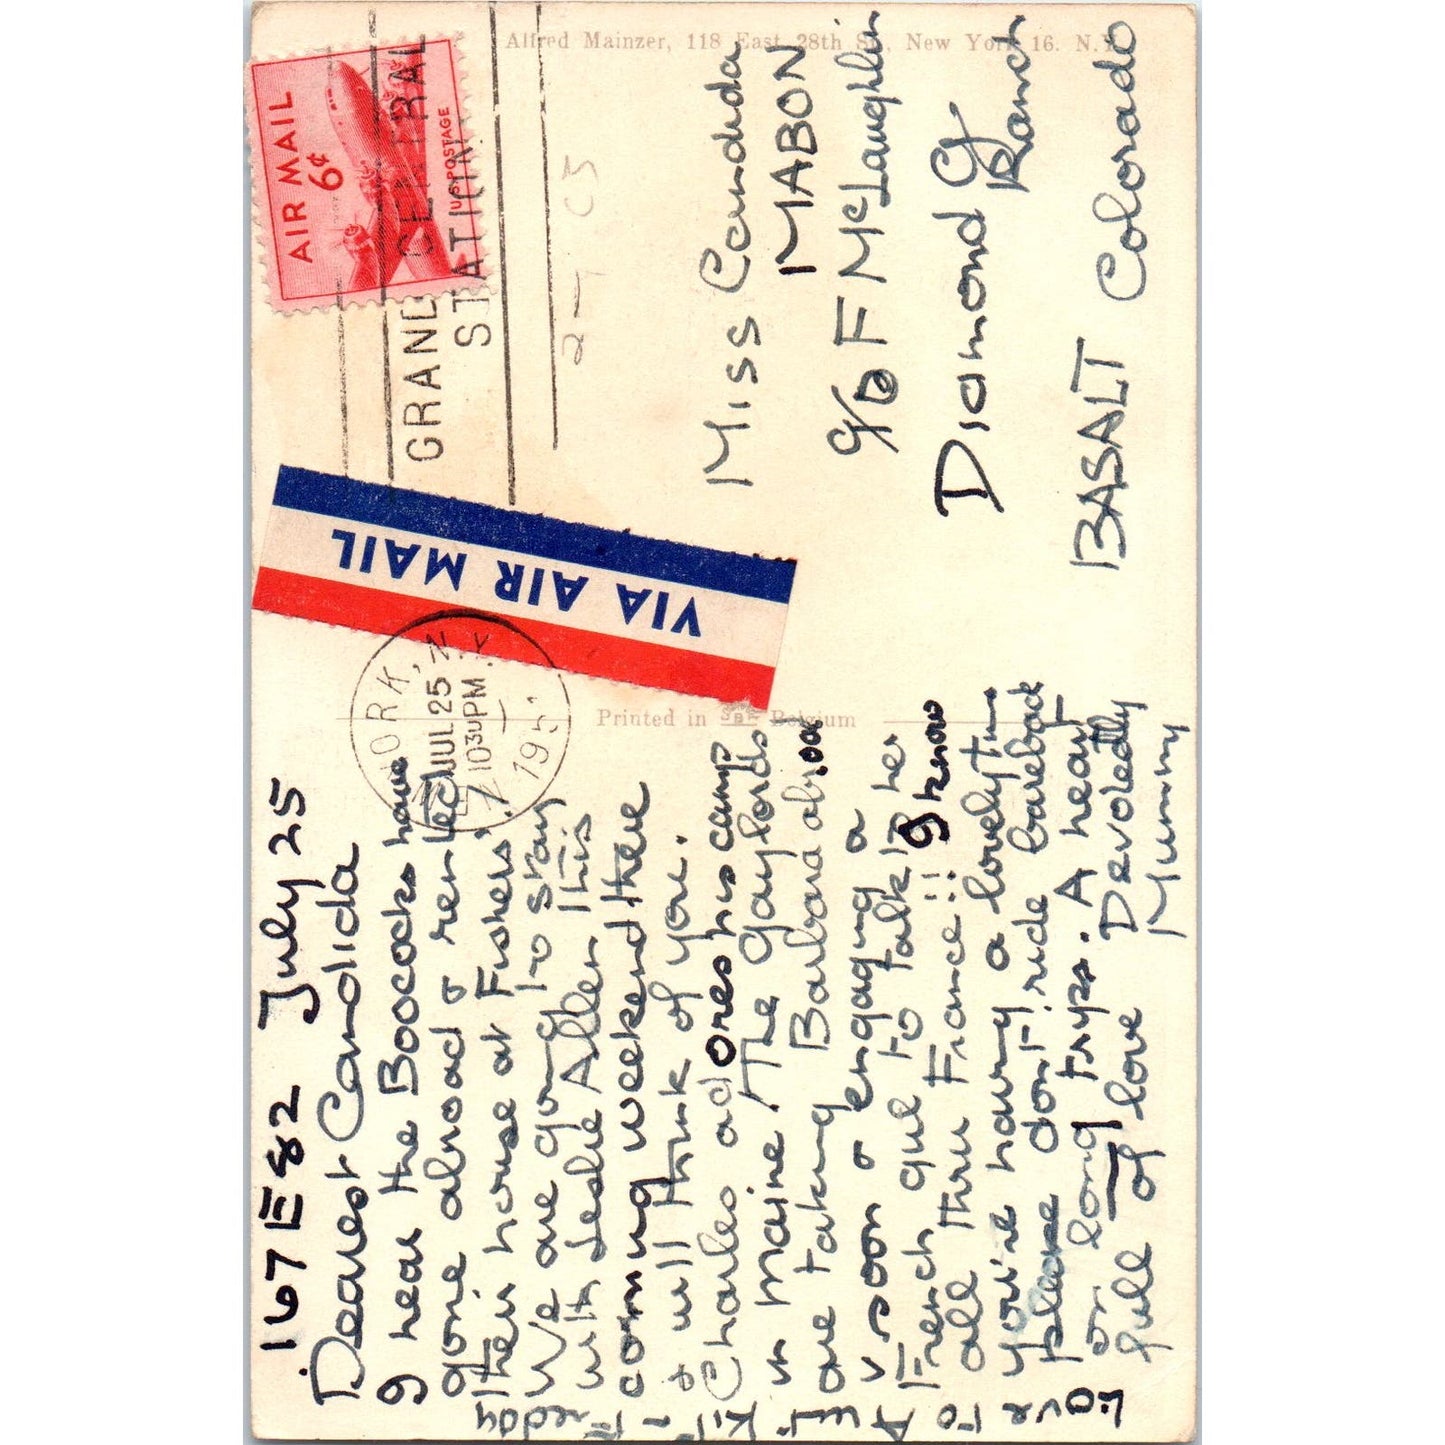 167 E 82 July 25
Dearest Candida
I hear the Boococks have
gone abroad & rented
their house at Fishers!
We are going to stay
with Leslie Allen this
coming weekend there
& will think of you.
Charles adores his camp
in Maine / The Gaylords
are taking Barbara abroad
v soon & engaging a
French girl to talk to her
all thru France!! I know
you're having a lovely time
please don't ride bareback
on long tryps. A heart
full of love Devotedly
Mummy
Freddy
Love
Alfred Mainzer, 118 East 28th St., New York 16. N.Y.
Printed in Belgium
AIR MAIL
6¢
U.S. POSTAGE
GRAND CENTRAL
STATION
VIA AIR MAIL
YORK, N.Y.
JUL 25
10 30 PM
195
Miss Candida
MABON
c/o F McLaughlin
Diamond G
Ranch
BASALT Colorado